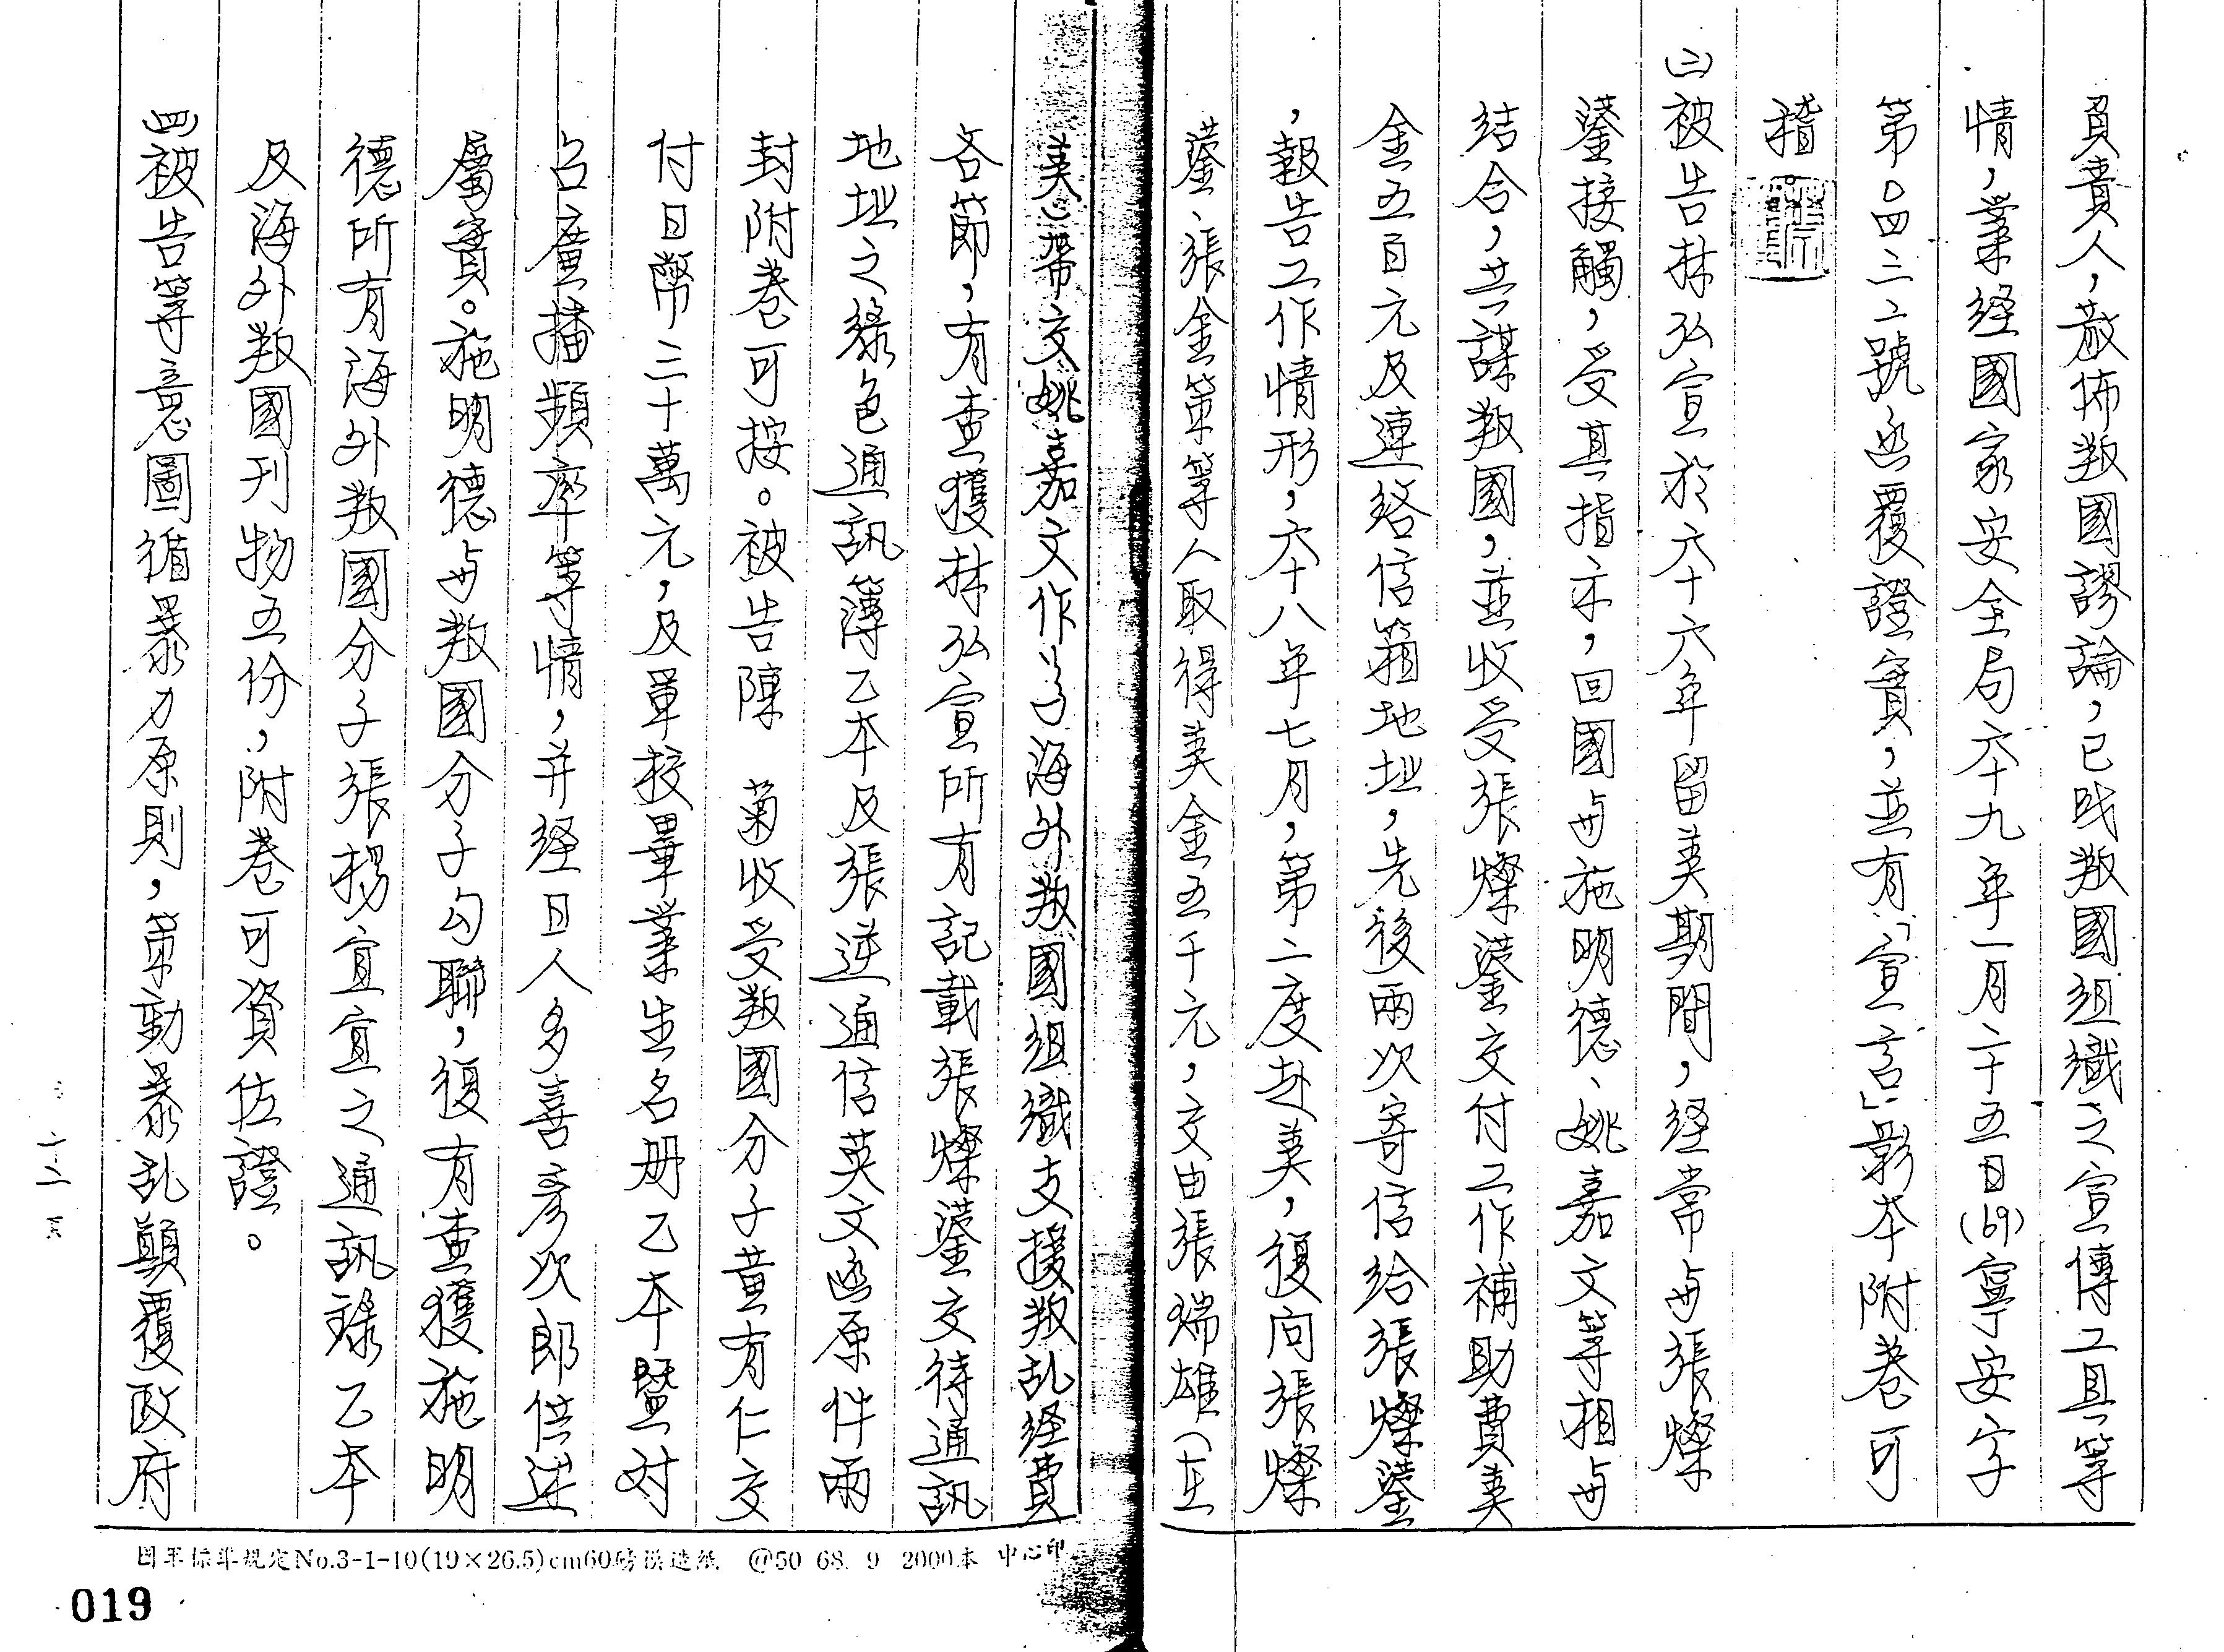 負責人，散佈叛國謬論，已成叛國組織之宣傳工具等
情，業経國家安全局六十九年一月二十五日(69)寧安字
第〇四三二號函覆證實，並有「宣言」影本附卷可
稽。
㈢被告林弘宣於六十六年留美期間，経常与張燦
鍙接觸，受其指示，回國与施明德、姚嘉文等相与
結合，共謀叛國，並收受張燦鍙交付工作補助費美
金五百元及連絡信箱地址，先後兩次寄信給張燦鍙
，報告工作情形，六十八年七月，第二度赴美，復向張燦
鍙、張金策等人取得美金五千元，交由張瑞雄（在
美）帶交姚嘉文作為海外叛國組織支援叛乱経費
各節，有查獲林弘宣所有記載張燦鍙交待通訊
地址之綠色通訊簿乙本及張逆通信英文函原件兩
封附卷可按。被告陳　菊收受叛國分子黃有仁交
付日幣三十萬元，及軍校畢業生名册乙本暨对
台廣播頻率等情，并経日人多喜彥次郎供述
屬實。施明德与叛國分子勾聯，復有查獲施明
德所有海外叛國分子張楊宜宜之通訊錄乙本
及海外叛國刊物五份，附卷可資佐證。
㈣被告等意圖循暴力原則，策動暴乱顛覆政府
二十二頁
國軍標準規定No.3-1-10(19×26.5)cm60磅模造紙　@50 68. 9 2000本 中心印
019